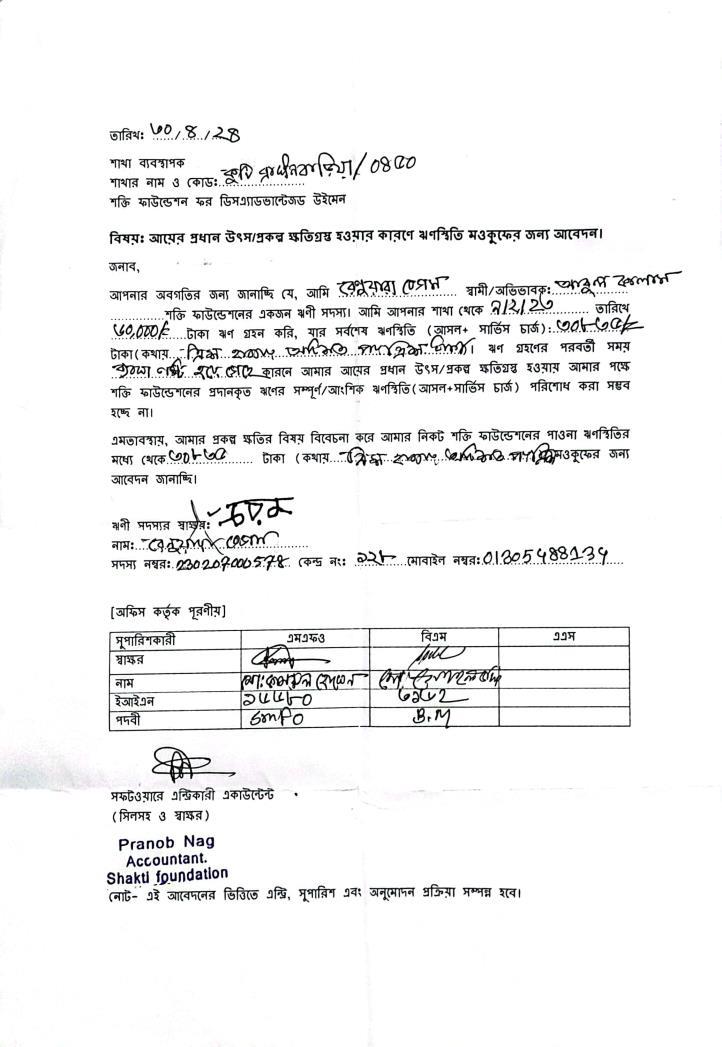 তারিখ: ৩০/৪/২৪
শাখা ব্যবস্থাপক
শাখার নাম ও কোড: /০৪৫০
শক্তি ফাউন্ডেশন ফর ডিসএ্যাডভান্টেজড উইমেন
বিষয়: আয়ের প্রধান উৎস/প্রকল্প ক্ষতিগ্রস্থ হওয়ার কারণে ঋণস্থিতি মওকুফের জন্য আবেদন।
জনাব,
আপনার অবগতির জন্য জানাচ্ছি যে, আমি বেগম স্বামী/অভিভাবক: আবুল কালাম
শক্তি ফাউন্ডেশনের একজন ঋণী সদস্য। আমি আপনার শাখা থেকে ৭/২/২৩ তারিখে
৬০,০০০/= টাকা ঋণ গ্রহন করি, যার সর্বশেষ ঋণস্থিতি (আসল+ সার্ভিস চার্জ): ৩০৮৩৫/=
টাকা (কথায় ত্রিশ হাজার আটশত )। ঋণ গ্রহণের পরবর্তী সময়
নষ্ট হয়ে গেছে কারনে আমার আয়ের প্রধান উৎস/প্রকল্প ক্ষতিগ্রস্থ হওয়ায় আমার পক্ষে
শক্তি ফাউন্ডেশনের প্রদানকৃত ঋণের সম্পূর্ণ/আংশিক ঋণস্থিতি(আসল+সার্ভিস চার্জ) পরিশোধ করা সম্ভব
হচ্ছে না।
এমতাবস্থায়, আমার প্রকল্প ক্ষতির বিষয় বিবেচনা করে আমার নিকট শক্তি ফাউন্ডেশনের পাওনা ঋণস্থিতির
মধ্যে থেকে ৩০৮৩৫ টাকা (কথায় ত্রিশ হাজার আটশত মওকুফের জন্য
আবেদন জানাচ্ছি।
ঋণী সদস্যর স্বাক্ষর:
নাম: বেগম
সদস্য নম্বর: 230207000578 কেন্দ্র নং: ১২৮ মোবাইল নম্বর: 01305488134
[অফিস কর্তৃক পূরণীয়]
সুপারিশকারী এমএফও বিএম এএস
স্বাক্ষর
নাম মো: হোসেন মো:
ইআইএন ১৫৫৮০ ৬১৫২
পদবী B.M
সফটওয়ারে এন্ট্রিকারী একাউন্টেন্ট
(সিলসহ ও স্বাক্ষর)
Pranob Nag
Accountant.
Shakti foundation
নোট- এই আবেদনের ভিত্তিতে এন্ট্রি, সুপারিশ এবং অনুমোদন প্রক্রিয়া সম্পন্ন হবে।